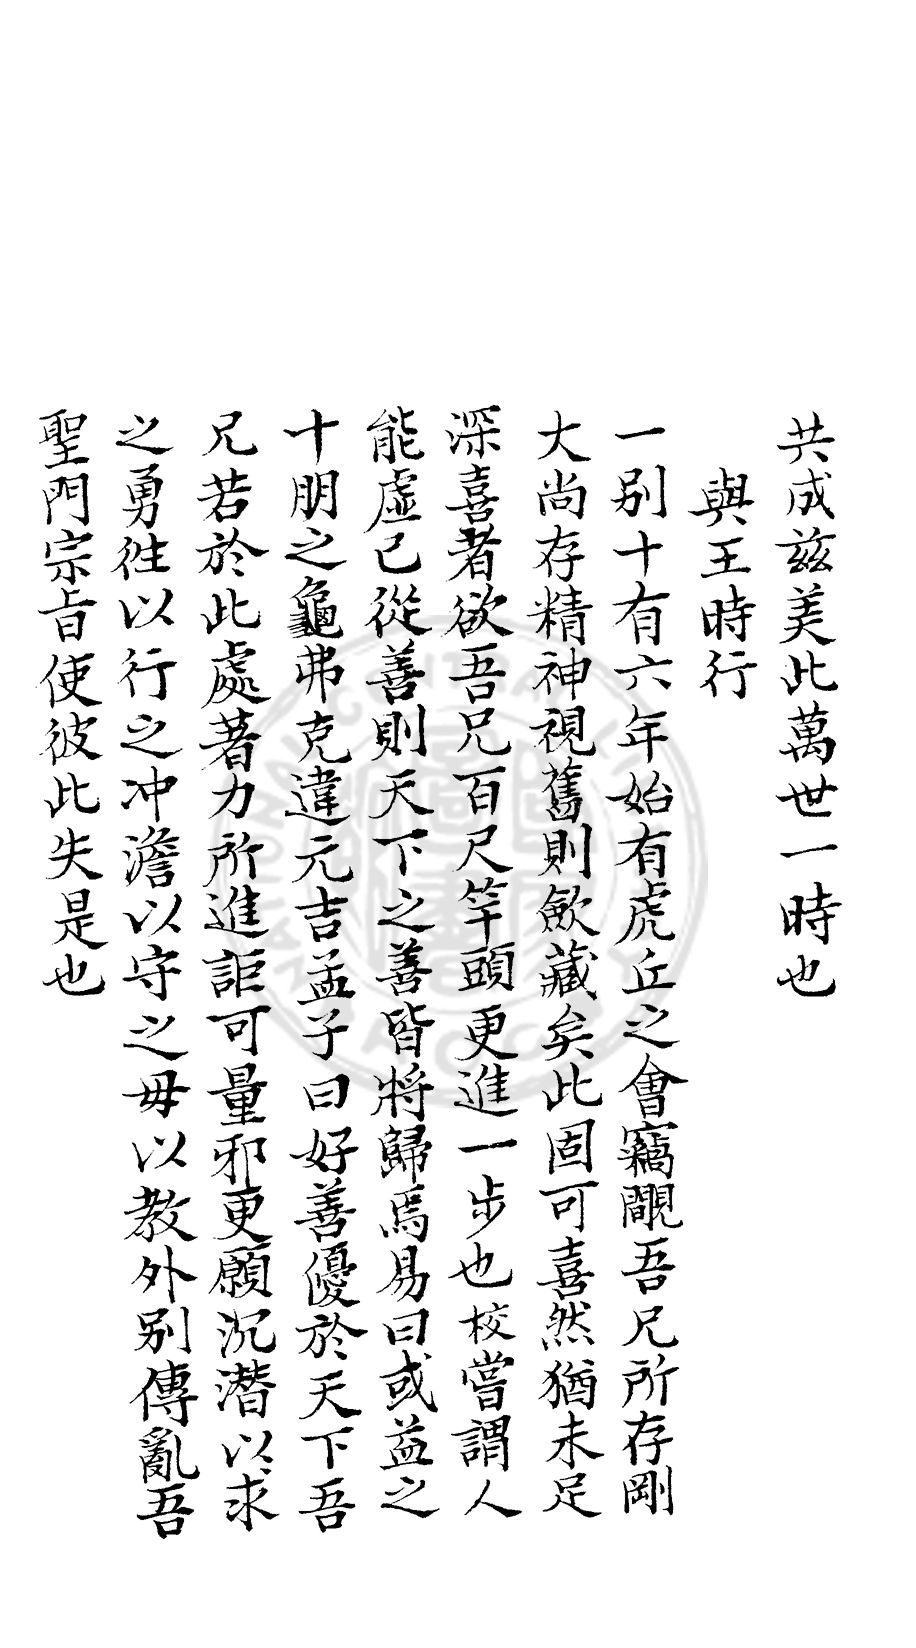 共成兹美此萬世一時也
與王時行
一别十有六年始有虎丘之會竊覸吾兄所存剛
大尚存精神視舊則歛藏矣此固可喜然猶未足
深喜者欲吾兄百尺竿頭更進一步也校嘗謂人
能虛己從善則天下之善皆將歸焉易曰或益之
十朋之龜弗克違元吉孟子曰好善優於天下吾
兄若於此處著力所進詎可量邪更願沉潜以求
之勇徃以行之冲澹以守之毋以教外别傳亂吾
聖門宗旨使彼此失是也